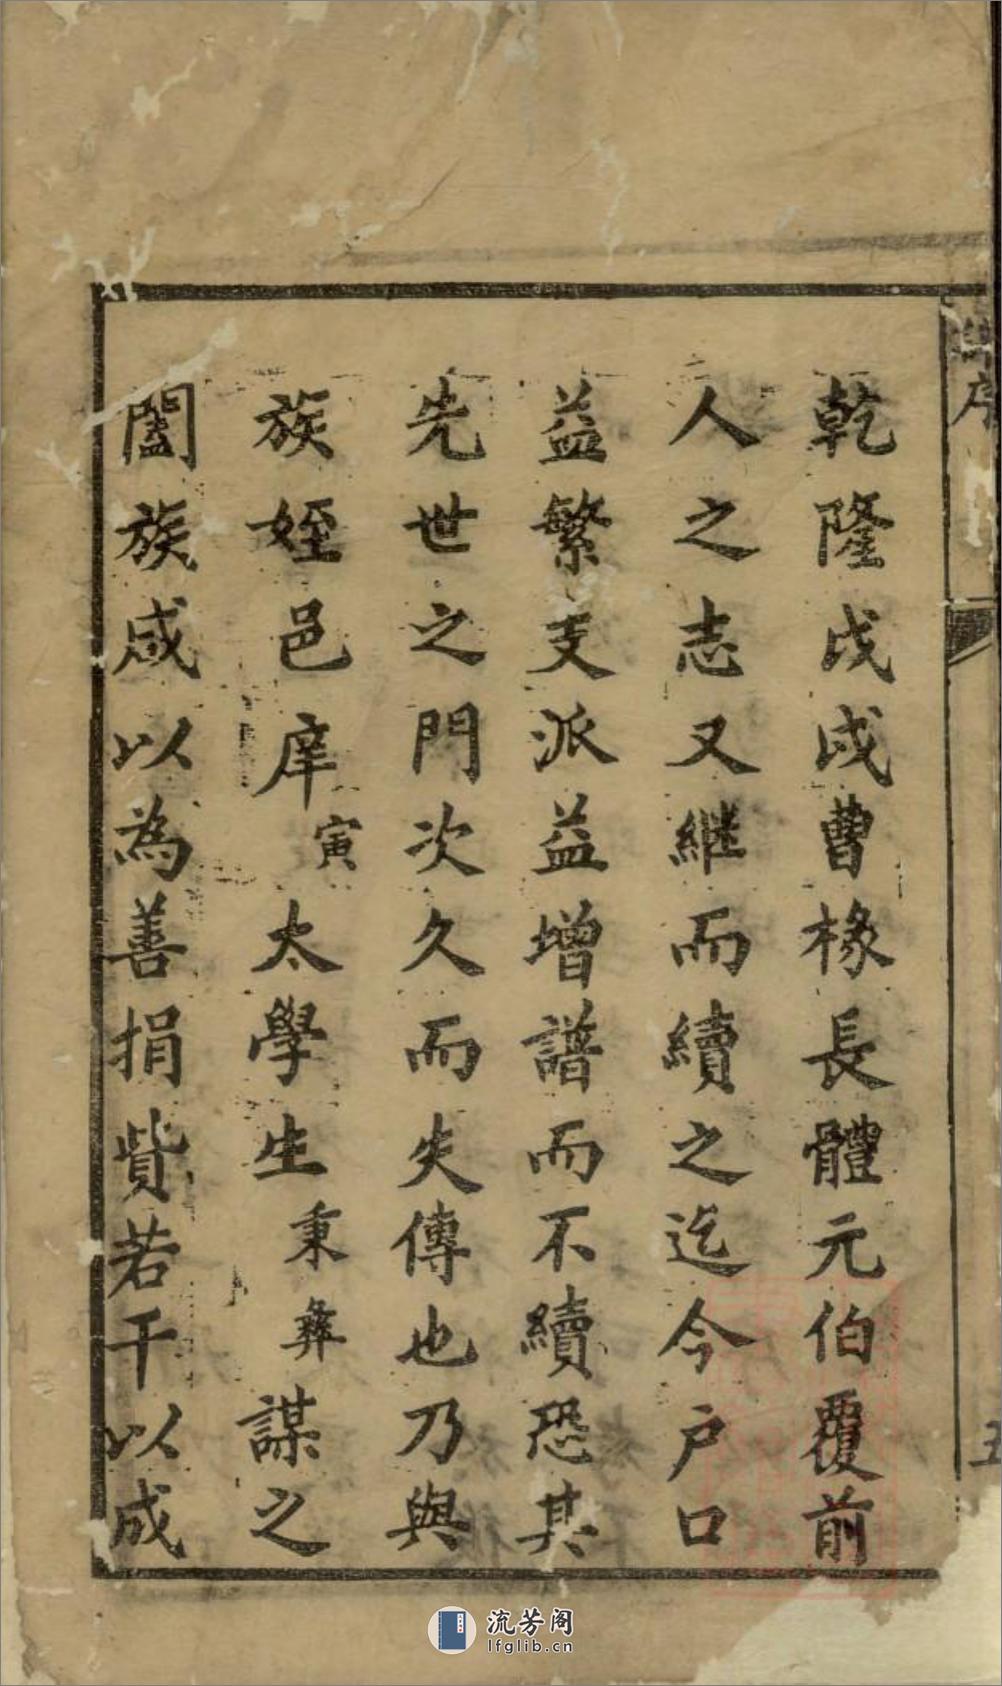 乾隆戊戌曹椽長體元伯覆前
人之志又繼而續之迄今户口
益繁支派益增譜而不續恐其
先世之門次久而失傳也乃與
族姪邑庠寅太學生秉彝謀之
闔族咸以為善捐貲若干以成
序
五
流芳阁
lfglib.cn